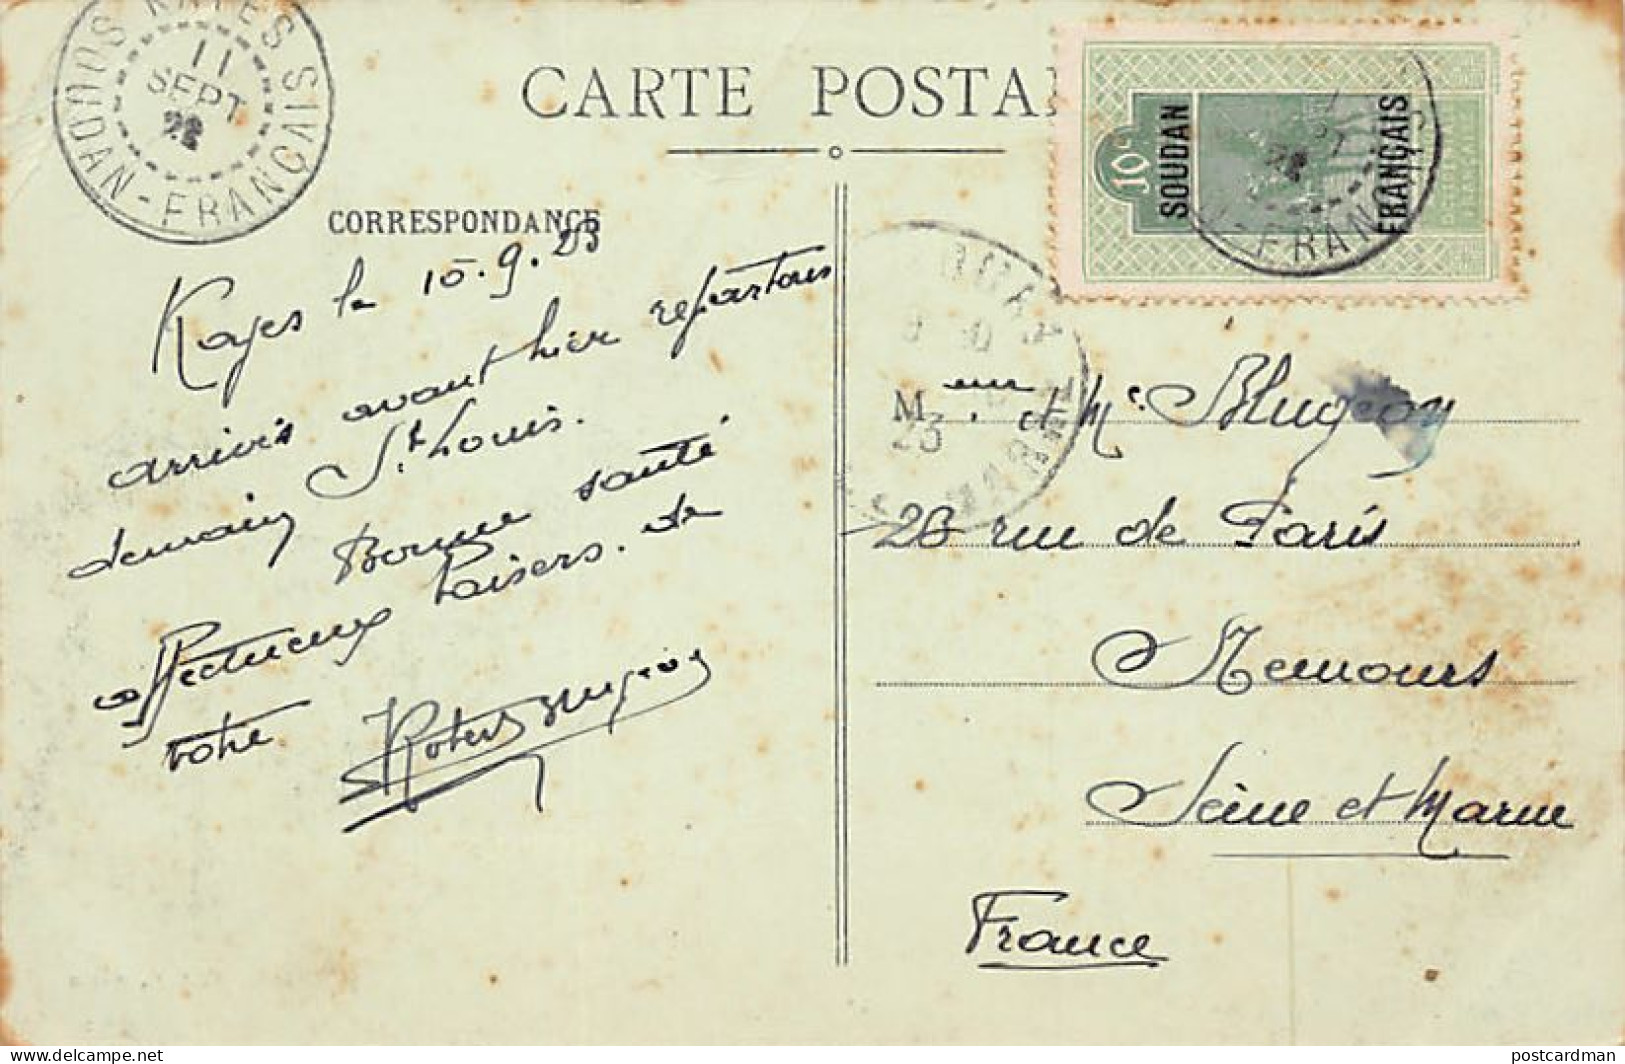 KAYES
SOUDAN-FRANÇAIS
11
SEPT
CARTE POSTA
10c
SOUDAN
FRANÇAIS
FRAN
CORRESPONDANCE
Kayes le 10.9.23
arrivés avant hier repartons
demain St Louis.
Bonne santé
affectueux baisers. de
votre Robert Blugeon
M eur et Me. Blugeon
23
26 rue de Paris
Nemours
Seine et Marne
France
delcampe.net
postcardman